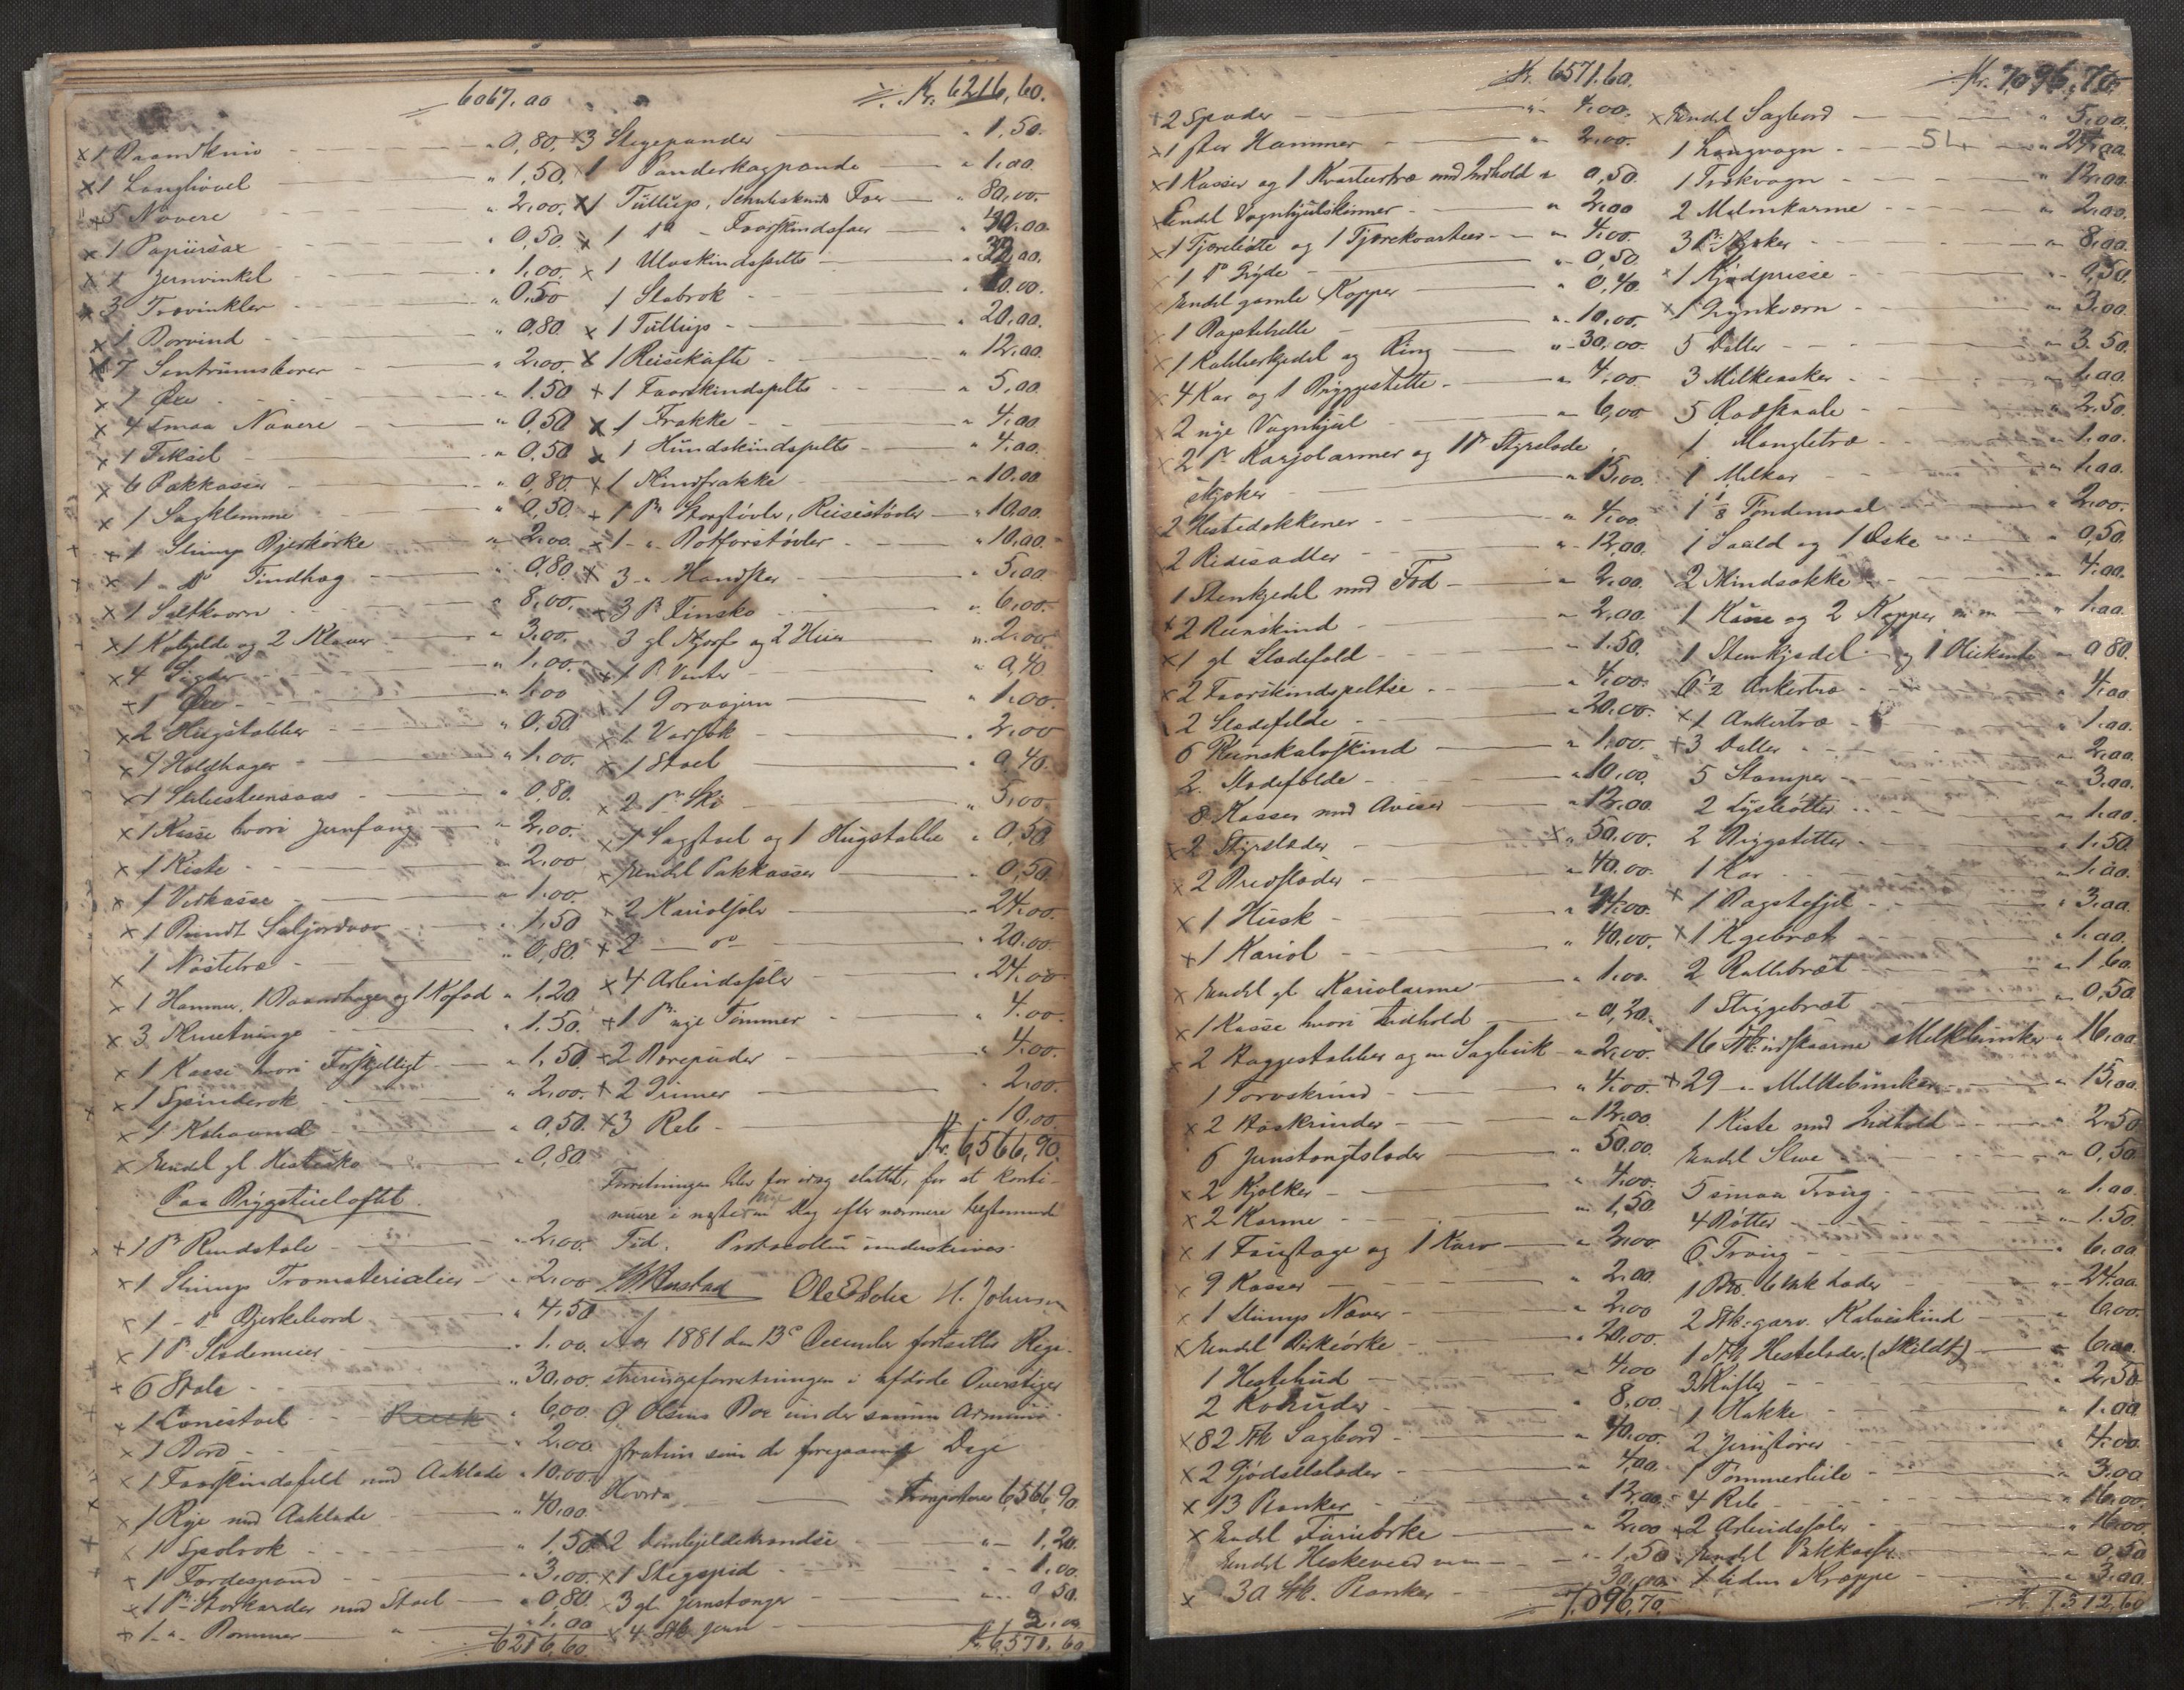 6067.00
× 1 Baandkniv " 0,80.
× 1 Langhøvel " 1,50.
× 5 Navere " 2,00.
× 1 Papiirsax " 0,50.
× 1 Jernvinkel " 1,00.
× 3 Trævinkler " 0,50
× 1 Borvind " 0,80
× 7 Sentrumsborer " 2,00.
× 1 Øxe " 1.50
× 4 smaa Navere " 0,50
× 1 Fiksel " 0,50
× 6 Pakkasser " 0,80
× 1 Sagklemme " 0,50.
× 1 Slump Bjerkørke " 2,00.
× 1 - do Tindhag " 0,80.
× 1 Saltkværn " 8,00.
× 1 Kobjelde og 2 Klaver " 3,00.
× 4 Sigder " 1,00.
× 1 Øxe " 1,00
× 2 Hugstabber " 0,50
× 4 Holdhager " 1,00.
× 1 Slibesteensaas " 0,80.
× 1 Kasse hvori Jernfang " 2,00.
× 1 Kiste " 2,00
× 1 Vedkasse " 1,00.
× 1 Bundt Seljordvov " 1,50
× 1 Nøstetræ " 0,80.
× 1 Hammer, 1 Baandhage og 1 Kofod " 1,20
× 3 Skruetvinge " 1.50.
× 1 Kasse hvori Forskjelligt " 1,50
× 1 Spinderok " 2,00.
× 1 Kobaand " 0,50.
× Endel gl. Hestesko " 0,80.
Paa Bryggstueloftet.
× 1 Pr Rendstole " 2,00.
× 1 Slump Træmaterialier " 2,00
× 1 - do Bjerkebord " 4,50
× 1 Pr Slædemeier " 1.00
× 6 Stole " 30,00.
× 1 Lænestoel " 6,00
× 1 Bord " 2,00.
× 1 Faarskindsfeld med Aaklæde " 10.00
× 1 Rye med Aaklæde " 40,00.
× 1 Spolrok " 1,50
× 1 Færdespand " 3,00.
× 1 Pr Storkarder med Stoel " 0,80.
× 1 - " - Bommer " 1,00
6216,60.
Kr. 6216,60.
× 3 Stegepander " 1,50.
× 1 Panderkagpande " 1.00
× 1 Tullup, Schubskinds Foer " 80,00.
× 1 do - Faarskindsfoer " 40,00
× 1 Ulveskindspelts " 32,00.
1 Slabrok 10.00.
× 1 Tullup " 20,00.
× 1 Reisekufte " 12,00.
× 1 Faarskindspelts " 5,00
× 1 Frakke " 4,00
× 1 Hundskindspelts " 4,00.
× 1 Skindfrakke " 10.00
× 1 Pr Storstøvler, Reisestøvler " 10,00.
× 1 - " - Botforstøvler " 10,00.
× 3 - " - Handsker " 5,00
× 3 Pr Finsko " 6,00.
3 gl Skjorf og 2 Huer " 2,00.
× 1 Pr Vanter " 0,40.
× 1 Gorvajern 1.00.
× 1 Varsok 2,00
× 1 Stoel " 0,40.
× 2 Pr Ski " 5,00
× 1 Sagstoel og 1 Hugstabbe " 0,50
× Endel Pakkasser " 0,50.
× 2 Kariolsæler " 24,00.
× 2 — do " 20,00
× 4 Arbeidssæler " 24,00
× 1 Pr nye Tømmer " 4,00.
× 2 Bærepuder " 4,00.
× 2 Grimer " 2,00.
× 3 Reb " 10,00.
Kr. 6,566,90.
Forretningen blev for idag sluttet, for at konti-
nuere i næste nye Dag efter nærmere bestemmende
Tid. Protocollen underskrives.
Ole Olsen H. Johnsen
Aar 1881 den 13de December fortsattes Regi-
streringsforretningen i afdøde Overstiger
O. Olsens Boe under samme Admini-
stration som de foregaaende Dage
Hvorda Transporteres 6566,90
× 2 Lambjeldekrandse " 1,20.
× 1 Stegspid " 1.00.
× 3 gl. Jernstænger " 0,50.
× 4 Stk. Jern 2,00
Kr. 6,571,60
Kr. 6571.60.
× 2 Spader " 4,00.
× 1 stor Hammer " 2,00.
× 1 Kasser og 1 Kvarteertræ med Indhold " 0,50.
Endel Vognhjulskinner " 2,00
× 1 Tjærebøtte og 1 Tjærekvarteer " 4,00.
× 1 do Gryde " 0,50
Endel gamle Kopper " 0,40.
× 1 Bagstehelle " 10,00.
× 1 Kobberkjedel og Ring " 30,00.
× 4 Kar og 1 Bryggestette " 4,00.
× 2 nye Vognhjul " 6,00
× 2 Pr Karjolarmer og 1 Pr Styreslæde
skjæker " 15,00.
2 Hestedækkener " 4,00.
2 Ridesadler " 12,00.
1 Steenkjedel med Fod " 2,00.
× 2 Reenskind " 2,00.
× 1 gl Slædefeld " 1.50.
× 2 Faarskindspeltse " 4,00.
2 Slædefelde " 20.00.
6 Reenskalvskind " 1,00.
2 Slædefelde " 10,00.
8 Kasser med Aviser " 12,00
× 2 Styreslæder " 50.00.
× 2 Bredslæder " 40.00.
× 1 Husk " 14,00.
× 1 Kariol " 40,00.
× Endel gl Kariolarme " 1.00.
× 1 Kasse hvori Indhold " 0,20.
× 2 Huggestabber og en Sagbuk " 2,00.
1 Torvskrind " 4,00
× 2 Høskrinder " 12,00
6 Jernstangtslæder " 50.00
× 2 Kjælker " 4,00.
× 2 Karme " 1,50.
× 1 Foustage og 1 Kurv " 2,00.
× 9 Kasser " 2,00.
× 1 Slump Næver " 2,00
× Endel Birkeørke " 20.00.
1 Hestehud " 4,00
2 Kohuder " 8,00.
× 82 Stk Sagbord " 40,00.
× 2 Gjødselslæder " 4,00.
× 13 Planker " 12,00.
× Endel Furuørke " 2,00
Endel Heskeved m m " 1,50
× 30 Stk. Planker 30,00.
7,096,70.
Kr. 7,096,70.
× Endel Sagbord " 5,00.
1 Langvogn 54 " 24,00
1 Trækvogn " 12,00.
2 Malmkarme " 2,00.
3 Pr Skjæker " 8,00.
× 1 Kjødpresse " 0,50.
× 1 Grynkværn " 3,00.
5 Baller " 3.50.
3 Milkeasker " 1,00.
5 Rødskaale " 2.50.
1 Mangletræ " 1.00.
1 Melkar " 1.00.
1 1/8 Tøndemaal " 2,00.
1 Saald og 1 Æske 0,50.
2 Skindsække " 4.00.
1 Kasse og 2 Kopper m m " 1.00.
1 Steenkjedel og 1 Blikkande " 0 80.
6 1/2 Ankertræ " 4,00
× 1 Ankertræ " 1.00.
× 3 Baller " 2,00
5 Stamper " 3.00.
2 Lysbøtter " 1,00.
2 Bryggstetter " 1.50.
1 Kar " 1,00.
× 1 Bagstefjel " 3.00.
× 1 Kgebræt " 1.00.
2 Rullebræt " 1 60.
1 Strygebræt " 0,50
16 Stk. indskaarne Melkebunker " 16,00
× 29 - " - Melkebunker " 15,00.
1 Kiste med Indhold 2.50
Endel Skoe " 0,50
5 smaa Traug " 1.00.
4 Bøtter " 1.50.
6 Traug " 6,00
1 Læder " 24,00.
2 Stk. garv. Kalveskind " 6,00.
1 Stk Hestelæder (Skildt) " 6,00.
3 Kufter " 2.50
1 Hakke " 1.00
2 Jernstører " 4,00.
1 Tømmerbile " 3.00
4 Reb " 16,00.
× 2 Arbeidssæler " 16,00.
Endel Pakkasser " 0,50
1 liden Kroppe " 3,00
Kr. 7312,60